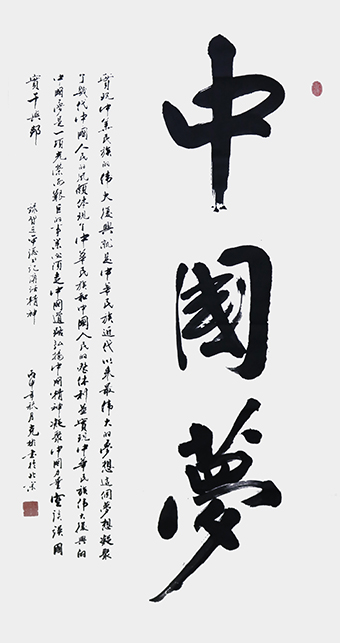 中國夢
實現中華民族的偉大復興就是中華民族近代以來最偉大的夢想這個夢想凝聚
了幾代中國人民的夙願體現了中華民族和中國人民的整體利益實現中華民族偉大復興的
中國夢是一項光榮而艱巨的事業必須走中國道路弘揚中國精神凝聚中國力量空談誤國
實干興邦
錄習近平總書記講話精神
丙申年秋月克書於北京